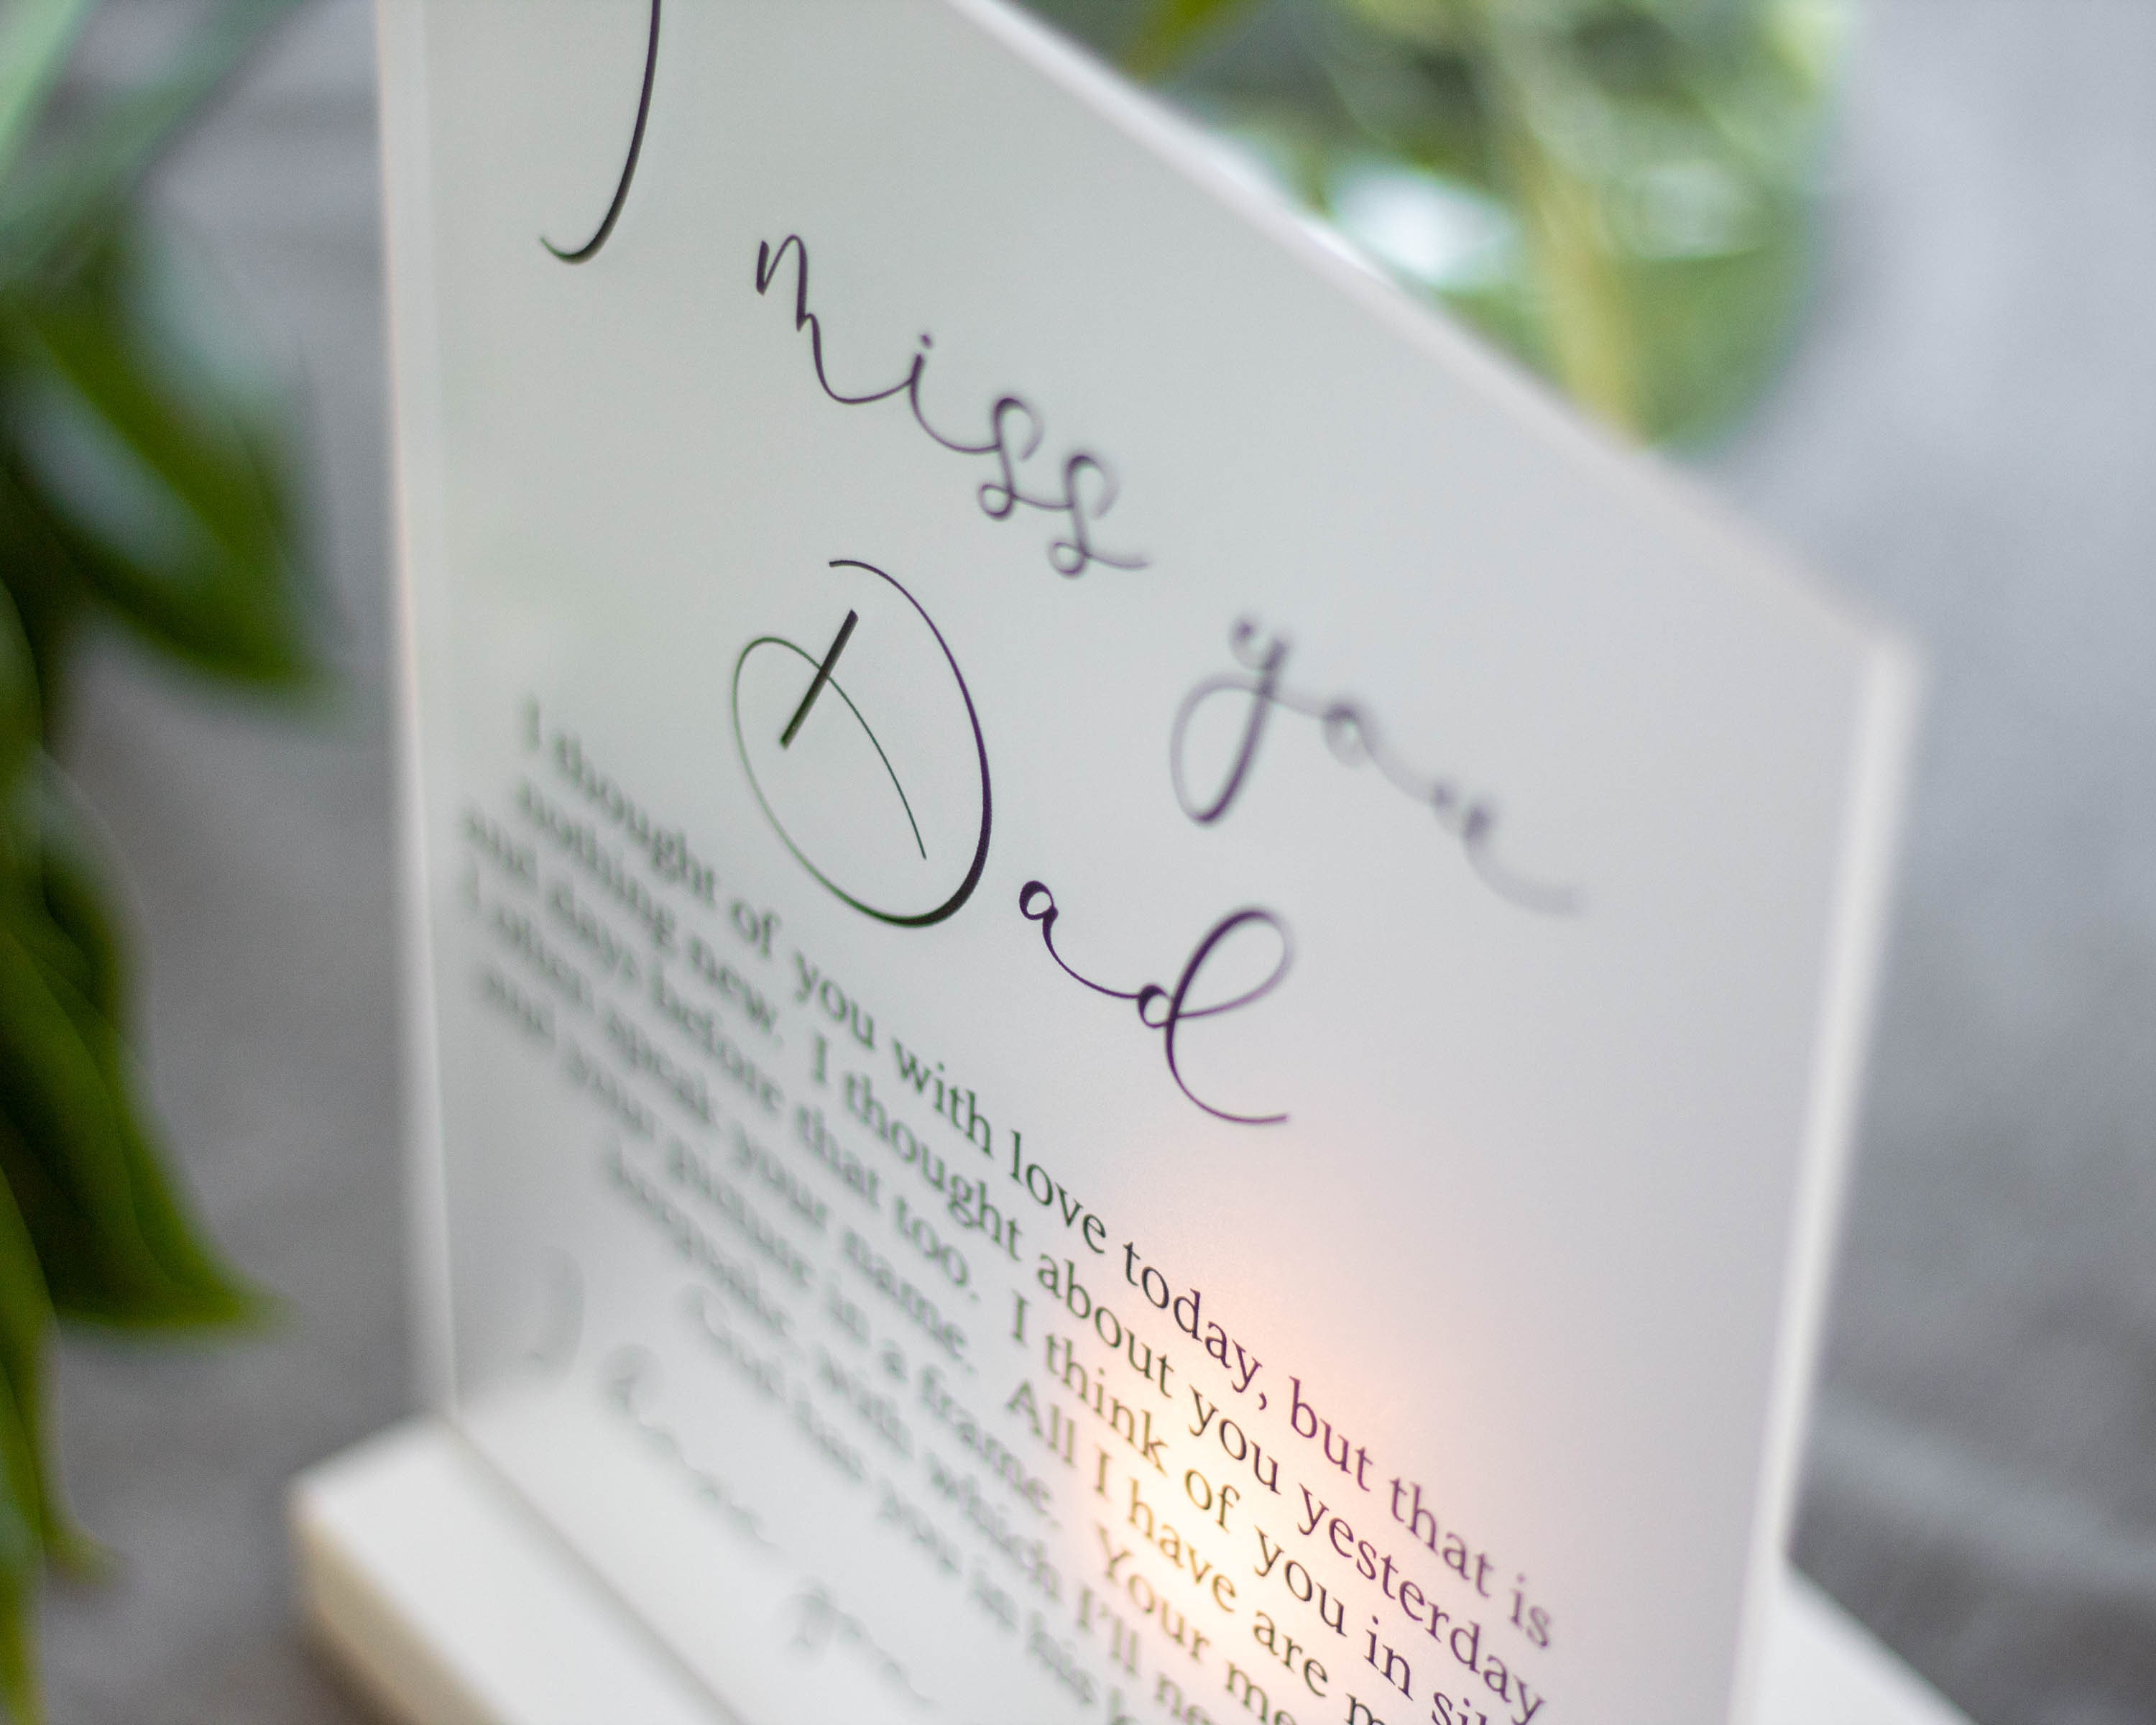 I miss you
Dad
I thought of you with love today, but that is
nothing new. I thought about you yesterday
and days before that too. I think of you in
I often speak your name. All I have are
and your picture in a frame. Your
keepsake, with which I'll
God has you in his